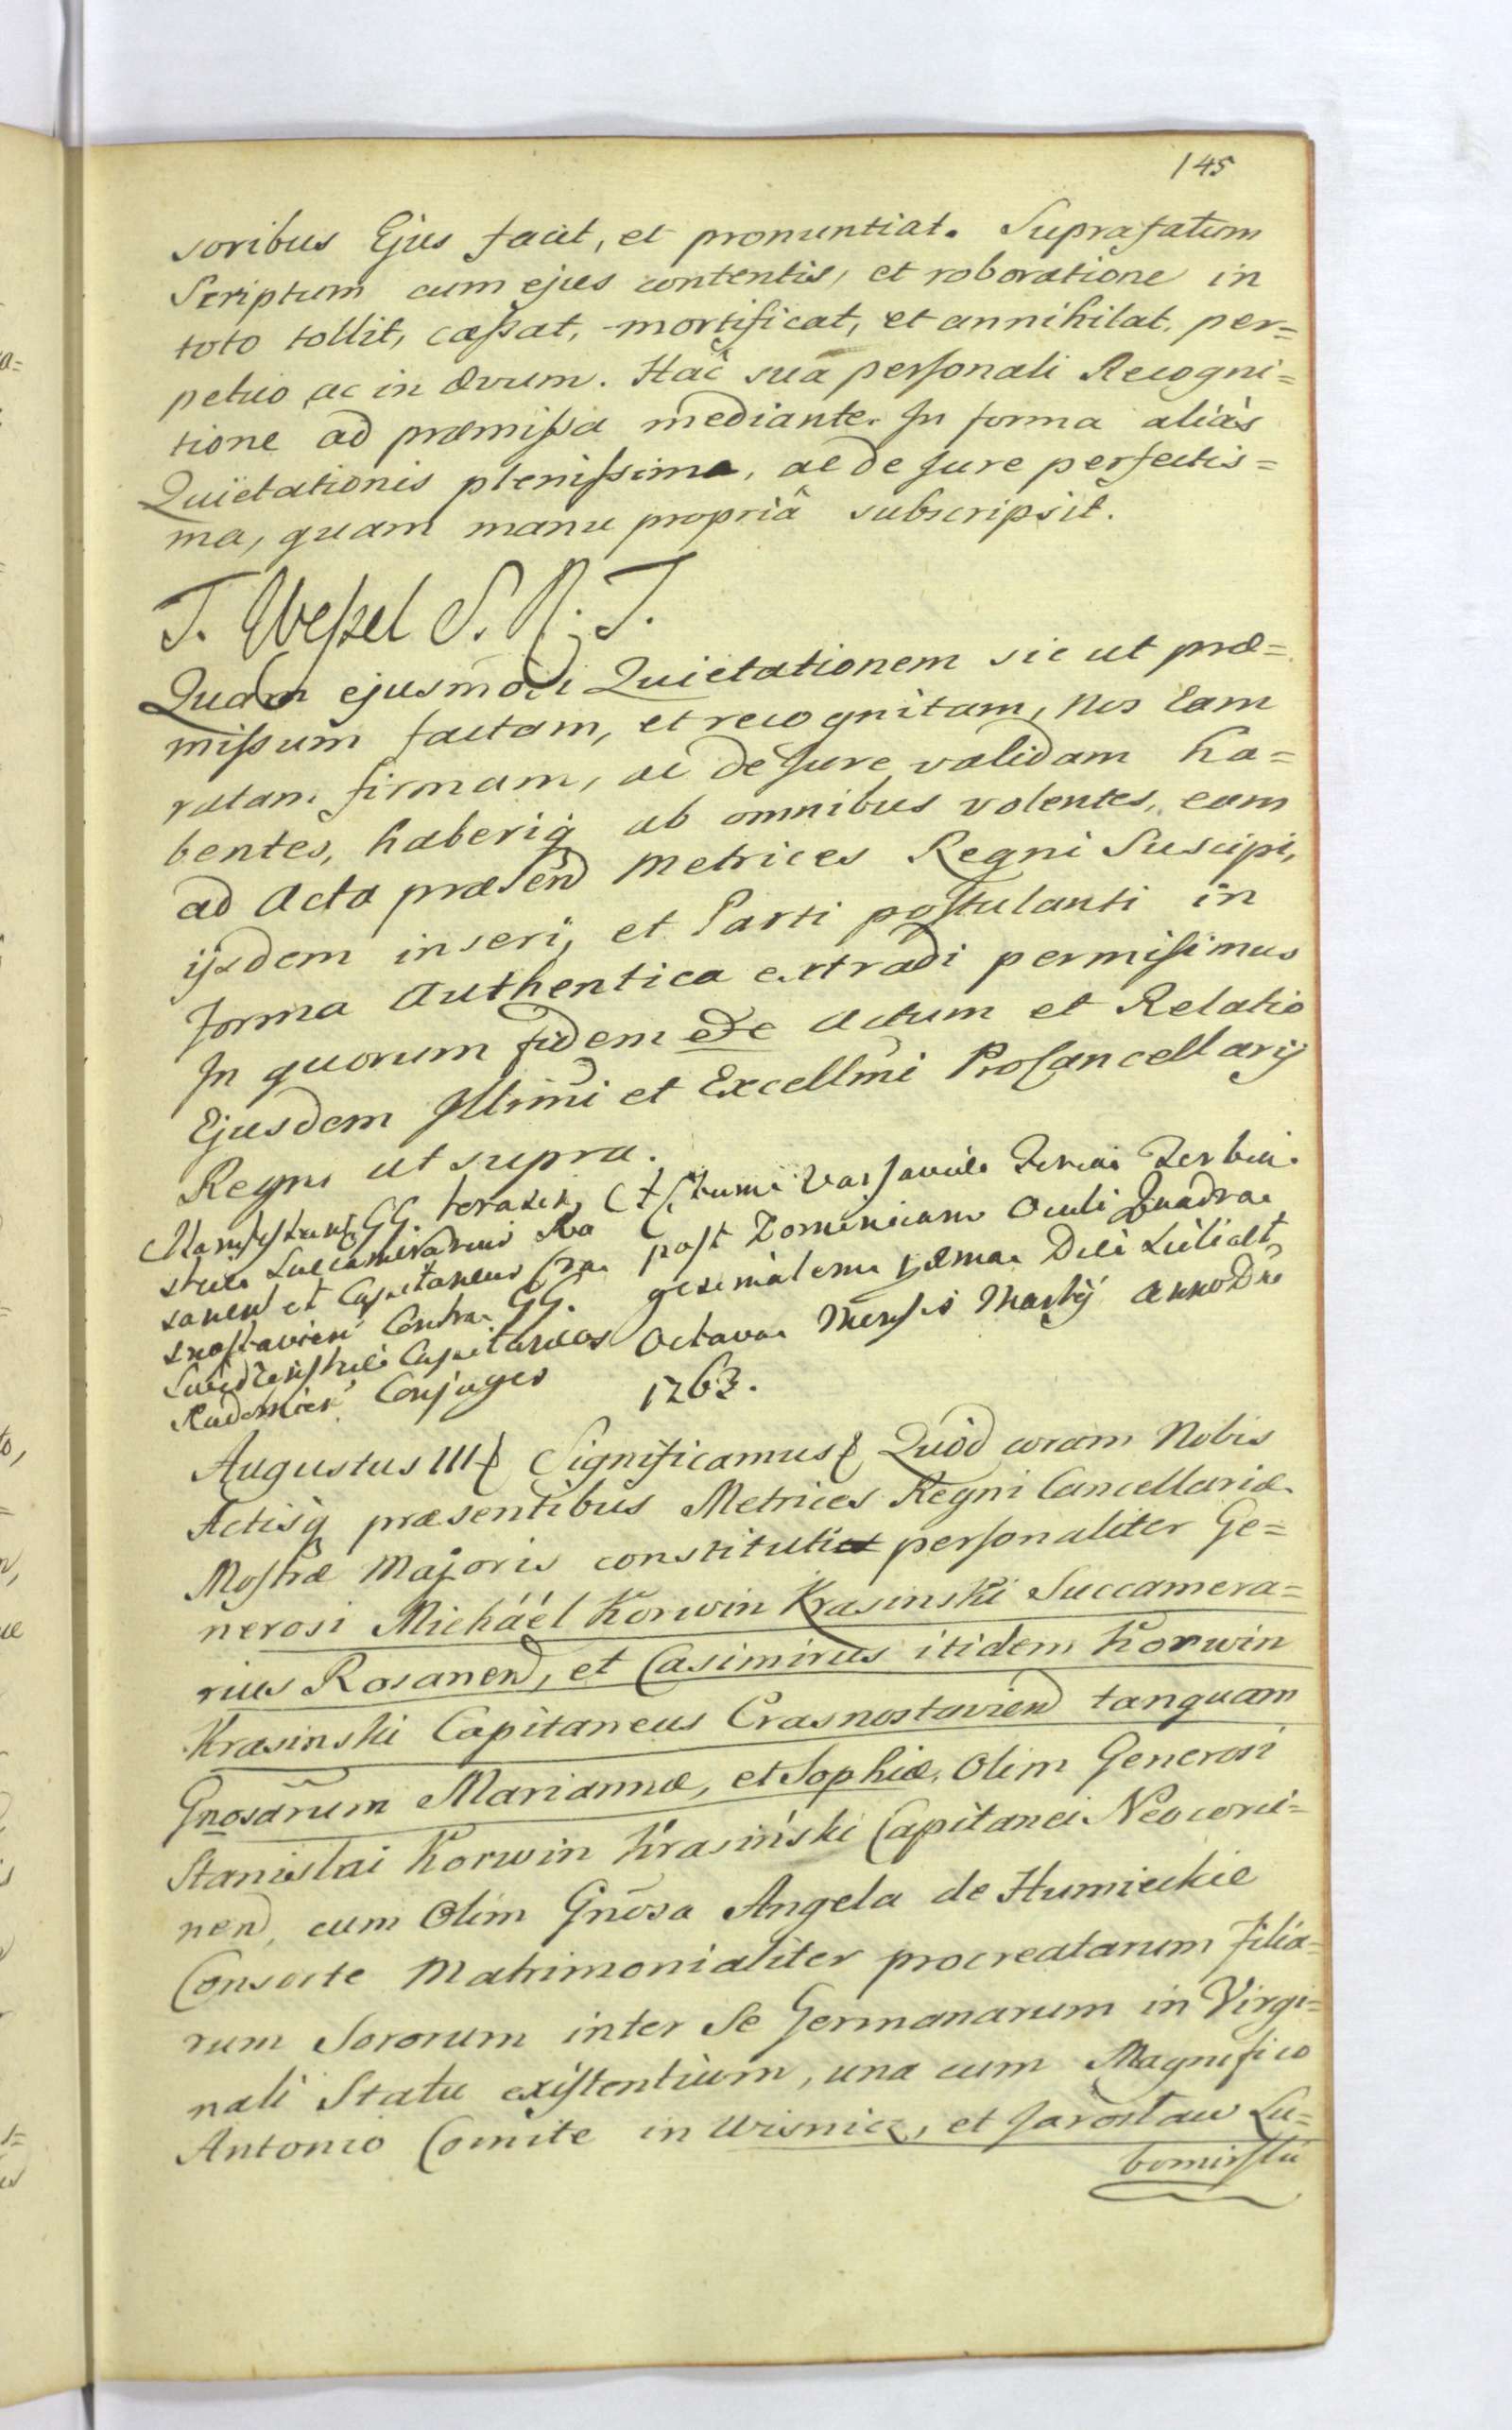 145
soribus Ejus facit, et pronuntiat. Suprafatum
Scriptum cum ejus contentis, et roboratione in
toto tollit, cassat, mortificat, et annihilat, per=
petuo ac in ævum. Hac sua personali Recogni=
tione ad præmissa mediante. In forma aliàs
Quietationis plenissima, ac de Jure perfectis=
ma, quam manu propriâ subscripsit.
T. Wessel S. R. T.
Quam ejusmodi Quietationem sic ut præ=
missum factam, et recognitam, Nos Eam
ratam firmam, ac de Jure validam ha=
bentes, haberiq ab omnibus volentes, eam
ad Acta præsen Metrices Regni Suscipi,
ijsdem inseri, et Parti postulanti in
forma Authentica extradi permisimus
In quorum fidem etc Actum et Relatio
Ejusdem Illmi et Excellmi ProCancellarij
Regni ut supra.
GG.
Succamerarius Ro
sanen et Capitaneus Cra
snostavien Contra GG.
Capitaneos
Radomien Conjuges
Actum Varsaviæ Feria
post Dominicam Oculi Quadra
gesimalem Die
Octava Mensis Martij Anno Dni
1763.
Augustus III Significamus Quod coram Nobis
Actisq præsentibus Metrices Regni Cancellariæ
Nostræ Majoris constituti personaliter Ge=
nerosi Michaél Korwin Krasinski Succamera=
rius Rosanen, et Casimirus itidem Korwin
Krasinski Capitaneus Crasnostavien tanquam
Gnosarum Mariannæ, et Sophiæ, Olim Generosi
Stanislai Korwin Krasiński Capitanei Neocorci=
nen, cum Olim Gnosa Angela de Humieckie
Consorte Matrimonialiter procreatarum filia=
rum Sororum inter Se Germanarum in Virgi=
nali Statu existentium, una cum Magnifico
Antonio Comite in Wisnicz, et Jarosław Lu=
bomirski